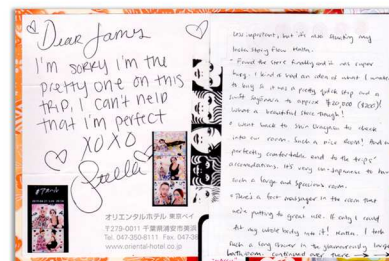 Dear James
I'm sorry I'm the
pretty one on this
trip, I can't help
that I'm perfect
XOXO
Stella
オリエンタルホテル 東京ベイ
〒279-0011 千葉県浦安市美浜
Tel. 047-350-8111 Fax. 047-3
www.oriental-hotel.co.jp
less important, but it's also thanking my
Insta story from
- Found the store finally and it was super
busy. I kind of had an idea of what I wanted
to buy so it was a pretty quick stop and a
swift ¥20,000 ($200).
What a beautiful store though!
• went back to Shin to check
into our room. Such a nice hotel! And a
perfectly comfortable end to the trip's
accomodations. It's very un-Japanese to have
such a large and spacious room.
- There's a foot massager in the room that
we're putting to great use. If only I could
fit my whole body into it! I took
such a long shower in the
bathroom. continued over there →